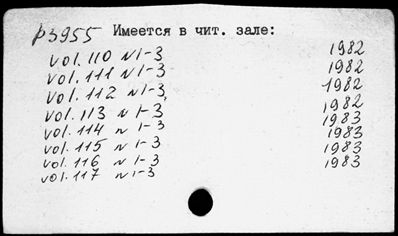 р3955 Имеется в чит. зале:
vol. 110 N 1-3 1982
vol. 111 N 1-3 1982
vol. 112 N 1-3, 1982
vol. 113 N 1-3 1982
vol. 114 N 1-3 1983
vol. 115 N 1-3 1983
vol. 116 N 1-3 1983
vol. 117 N 1-3 1983